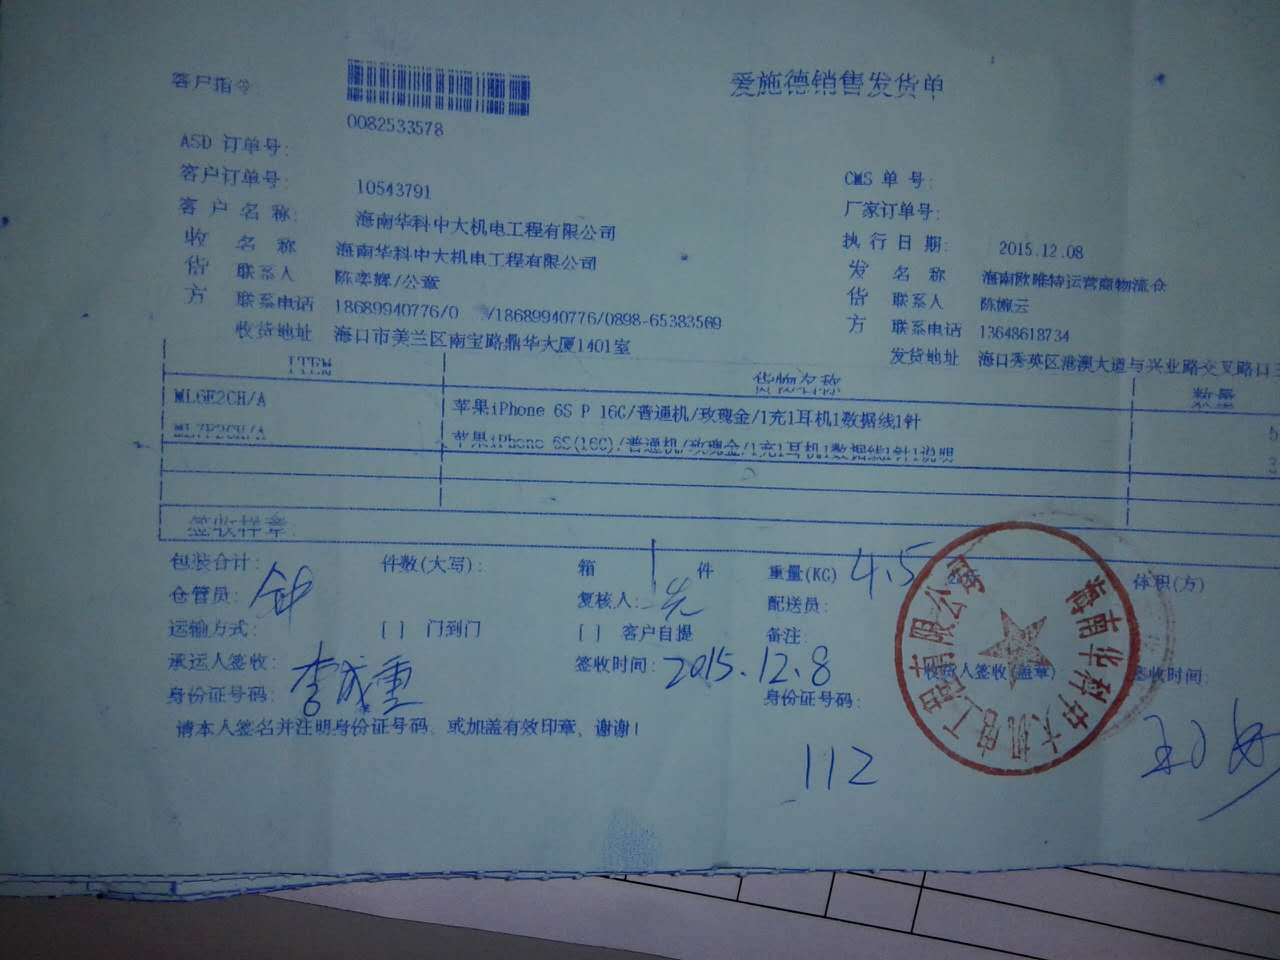 爱施德销售发货单
客户指令
0082533578
ASD 订单号:
客户订单号: 10543791 CMS 单 号:
客 户 名 称: 海南华科中大机电工程有限公司 厂家订单号:
执 行 日 期: 2015.12.08
收 名 称 海南华科中大机电工程有限公司 发 名 称 海南欧唯特运营商物流仓
货 联系人 陈奕辉/公章 货 联系人 陈婉云
方 联系电话 18689940776/0 /18689940776/0898-65383569 方 联系电话 13648618734
收货地址 海口市美兰区南宝路鼎华大厦1401室 发货地址 海口秀英区港澳大道与兴业路交叉路口
ITEM 货物名称 数量
ML6E2CH/A 苹果iPhone 6S P 16G/普通机/玫瑰金/1充1耳机1数据线1针 5
ML7P2CH/A 苹果iPhone 6S(16G)/普通机/玫瑰金/1充1耳机1数据线1针1说明 3
签收样章:
包装合计: 件数(大写): 箱 1 件 重量(KG) 4.5 体积(方)
仓管员: 钟 复核人: 配送员:
运输方式: [ ] 门到门 [ ] 客户自提 备注:
承运人签收: 李成重 签收时间: 2015.12.8 收货人签收(盖章) 签收时间:
身份证号码: 身份证号码:
请本人签名并注明身份证号码、或加盖有效印章、谢谢!
112
海南华科中大机电工程有限公司